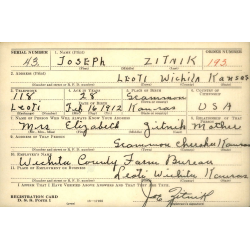 SERIAL NUMBER 1. NAME (Print) ORDER NUMBER
43 JOSEPH ZITNIK 193
2. ADDRESS (Print)
LEOTI Wichita Kansas
3. TELEPHONE 4. AGE IN YEARS 5. PLACE OF BIRTH 6. COUNTRY OF CITIZENSHIP
118 28 Scammon
Leoti Feb 16 1912 Kansas USA
7. NAME OF PERSON WHO WILL ALWAYS KNOW YOUR ADDRESS 8. RELATIONSHIP OF THAT PERSON
Mrs Elizabeth Zitnik Mother
9. ADDRESS OF THAT PERSON
Scammon Cherokee Kansas
10. EMPLOYER'S NAME
Wichita County Farm Bureau
Leoti Wichita Kansas
I AFFIRM THAT I HAVE VERIFIED ABOVE ANSWERS AND THAT THEY ARE TRUE.
REGISTRATION CARD
D. S. S. Form 1
Joe Zitnik